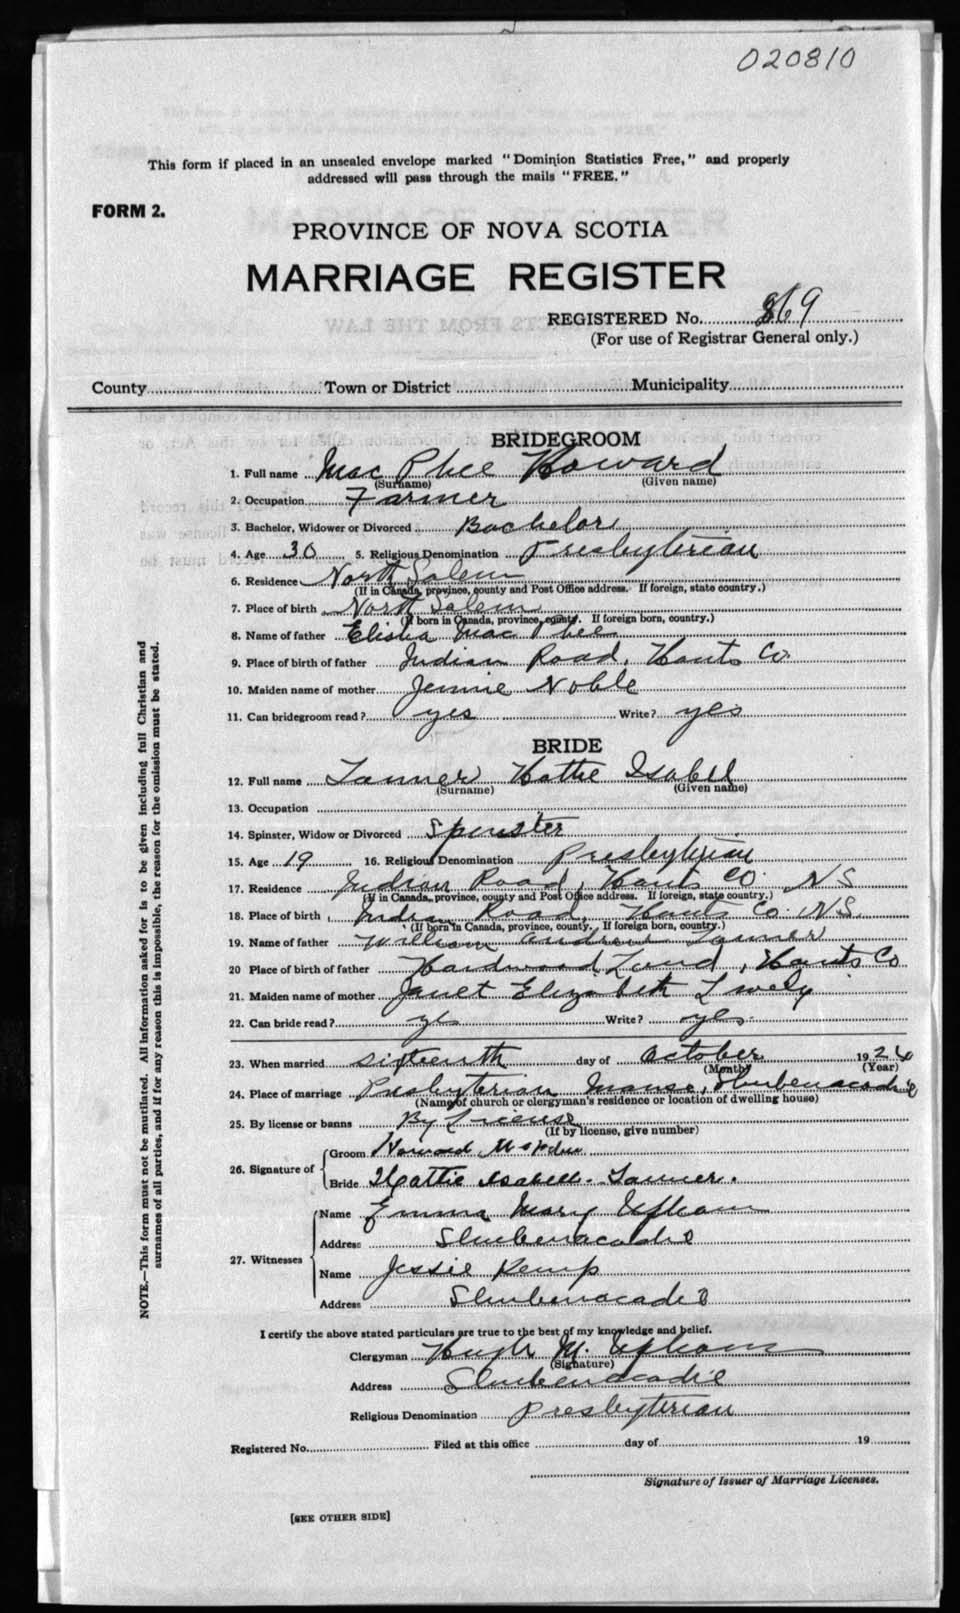 020810
This form if placed in an unsealed envelope marked "Dominion Statistics Free," and properly
addressed will pass through the mails "FREE."
FORM 2.
PROVINCE OF NOVA SCOTIA
MARRIAGE REGISTER
REGISTERED No. 869
(For use of Registrar General only.)
County Town or District Municipality
BRIDEGROOM
1. Full name Mac Phee Howard
(Surname) (Given name)
2. Occupation Farmer
3. Bachelor, Widower or Divorced Bachelor
4. Age 30 5. Religious Denomination Presbyterian
6. Residence North Salem
(If in Canada, province, county and Post Office address. If foreign, state country.)
7. Place of birth North Salem
(If born in Canada, province, county. If foreign born, country.)
8. Name of father Elisha Mac Phee
9. Place of birth of father Indian Road, Hants Co.
10. Maiden name of mother Jennie Noble
11. Can bridegroom read? yes Write? yes
BRIDE
12. Full name Tanner Hattie Isabel
(Surname) (Given name)
13. Occupation
14. Spinster, Widow or Divorced Spinster
15. Age 19 16. Religious Denomination Presbyterian
17. Residence Indian Road, Hants Co. NS
(If in Canada, province, county and Post Office address. If foreign, state country.)
18. Place of birth Indian Road, Hants Co. N.S.
(If born in Canada, province, county. If foreign born, country.)
19. Name of father William Andrew Tanner
20 Place of birth of father Hardwood Land, Hants Co
21. Maiden name of mother Janet Elizabeth Lively
22. Can bride read? yes Write? yes
23. When married sixteenth day of October 1926
(Month) (Year)
24. Place of marriage Presbyterian Manse, Shubenacadie
(Name of church or clergyman's residence or location of dwelling house)
25. By license or banns By License
(If by license, give number)
26. Signature of
Groom Howard McPhee
Bride Hattie Isabell. Tanner.
27. Witnesses
Name Emma Mary Upham
Address Shubenacadie
Name Jessie Kemp
Address Shubenacadie
I certify the above stated particulars are true to the best of my knowledge and belief.
Clergyman Hugh M. Upham
(Signature)
Address Shubenacadie
Religious Denomination Presbyterian
Registered No. Filed at this office day of 19
Signature of Issuer of Marriage Licenses.
[SEE OTHER SIDE]
NOTE.—This form must not be mutilated. All information asked for is to be given including full Christian and
surnames of all parties, and if for any reason this is impossible, the reason for the omission must be stated.